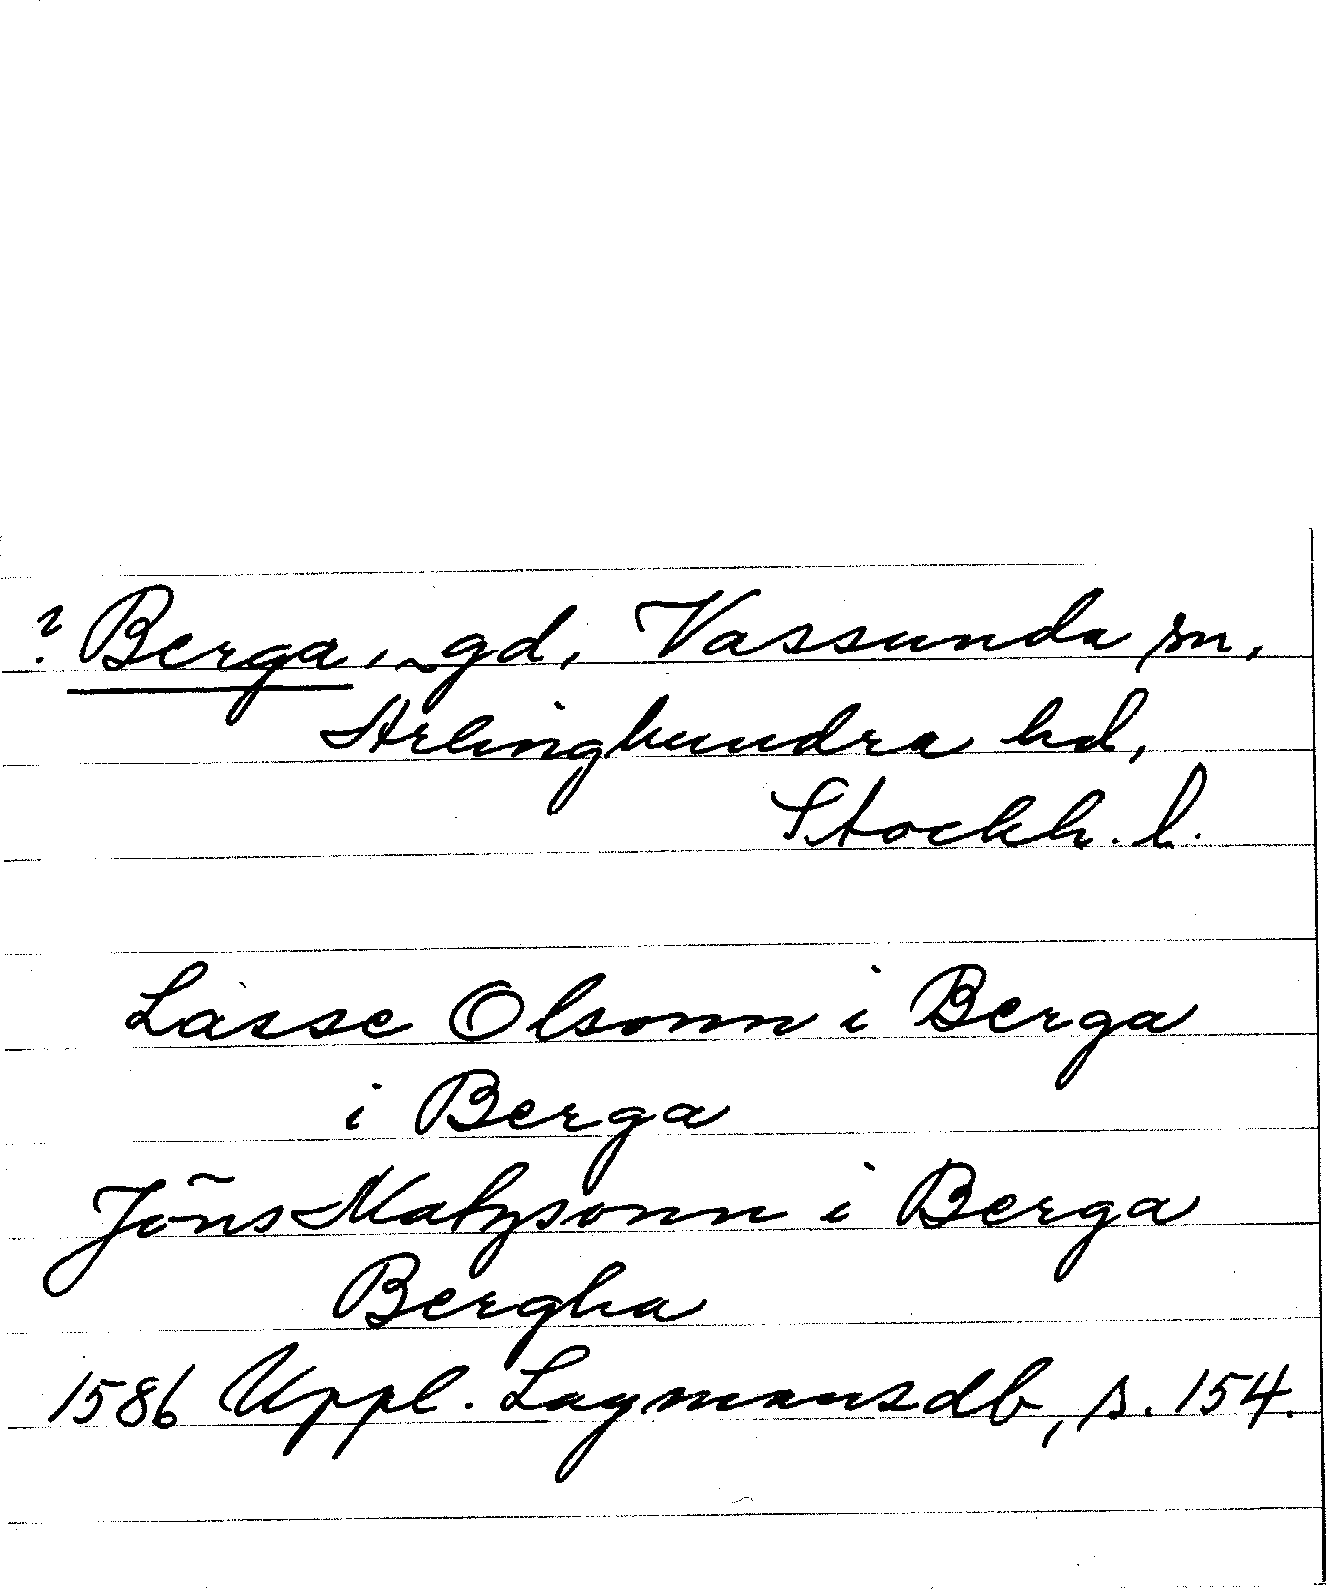 ? Berga, gd, Vassunda sn,
Ärlinghundra hd,
Stockh. l.
Lasse Olsonn i Berga
i Berga
Jöns Matzsonn i Berga
Bergha
1586 Uppl. Lagmansdb, s. 154.